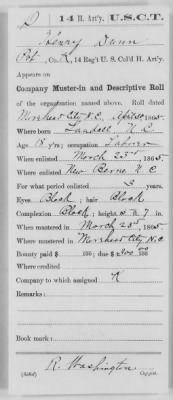 D 14 H. Art'y. U.S.C.T.
Henry Dunn
Pvt., Co. K, 14 Reg't U. S. Col'd H. Art'y.
Appears on
Company Muster-in and Descriptive Roll
of the organization named above. Roll dated
Morehead City N.C. Apr 30, 1865.
Where born N.C.
Age 18 y'rs; occupation Laborer
When enlisted March 23rd, 1865.
Where enlisted New Berne N.C.
For what period enlisted 3 years.
Eyes Black; hair Black
Complexion Black; height 5 ft. 7 in.
When mustered in March 23rd, 1865.
Where mustered in Morehead City N.C.
Bounty paid $ 100; due $ 100
Where credited
Company to which assigned K
Remarks:
Book mark:
R. Washington
Copyist.